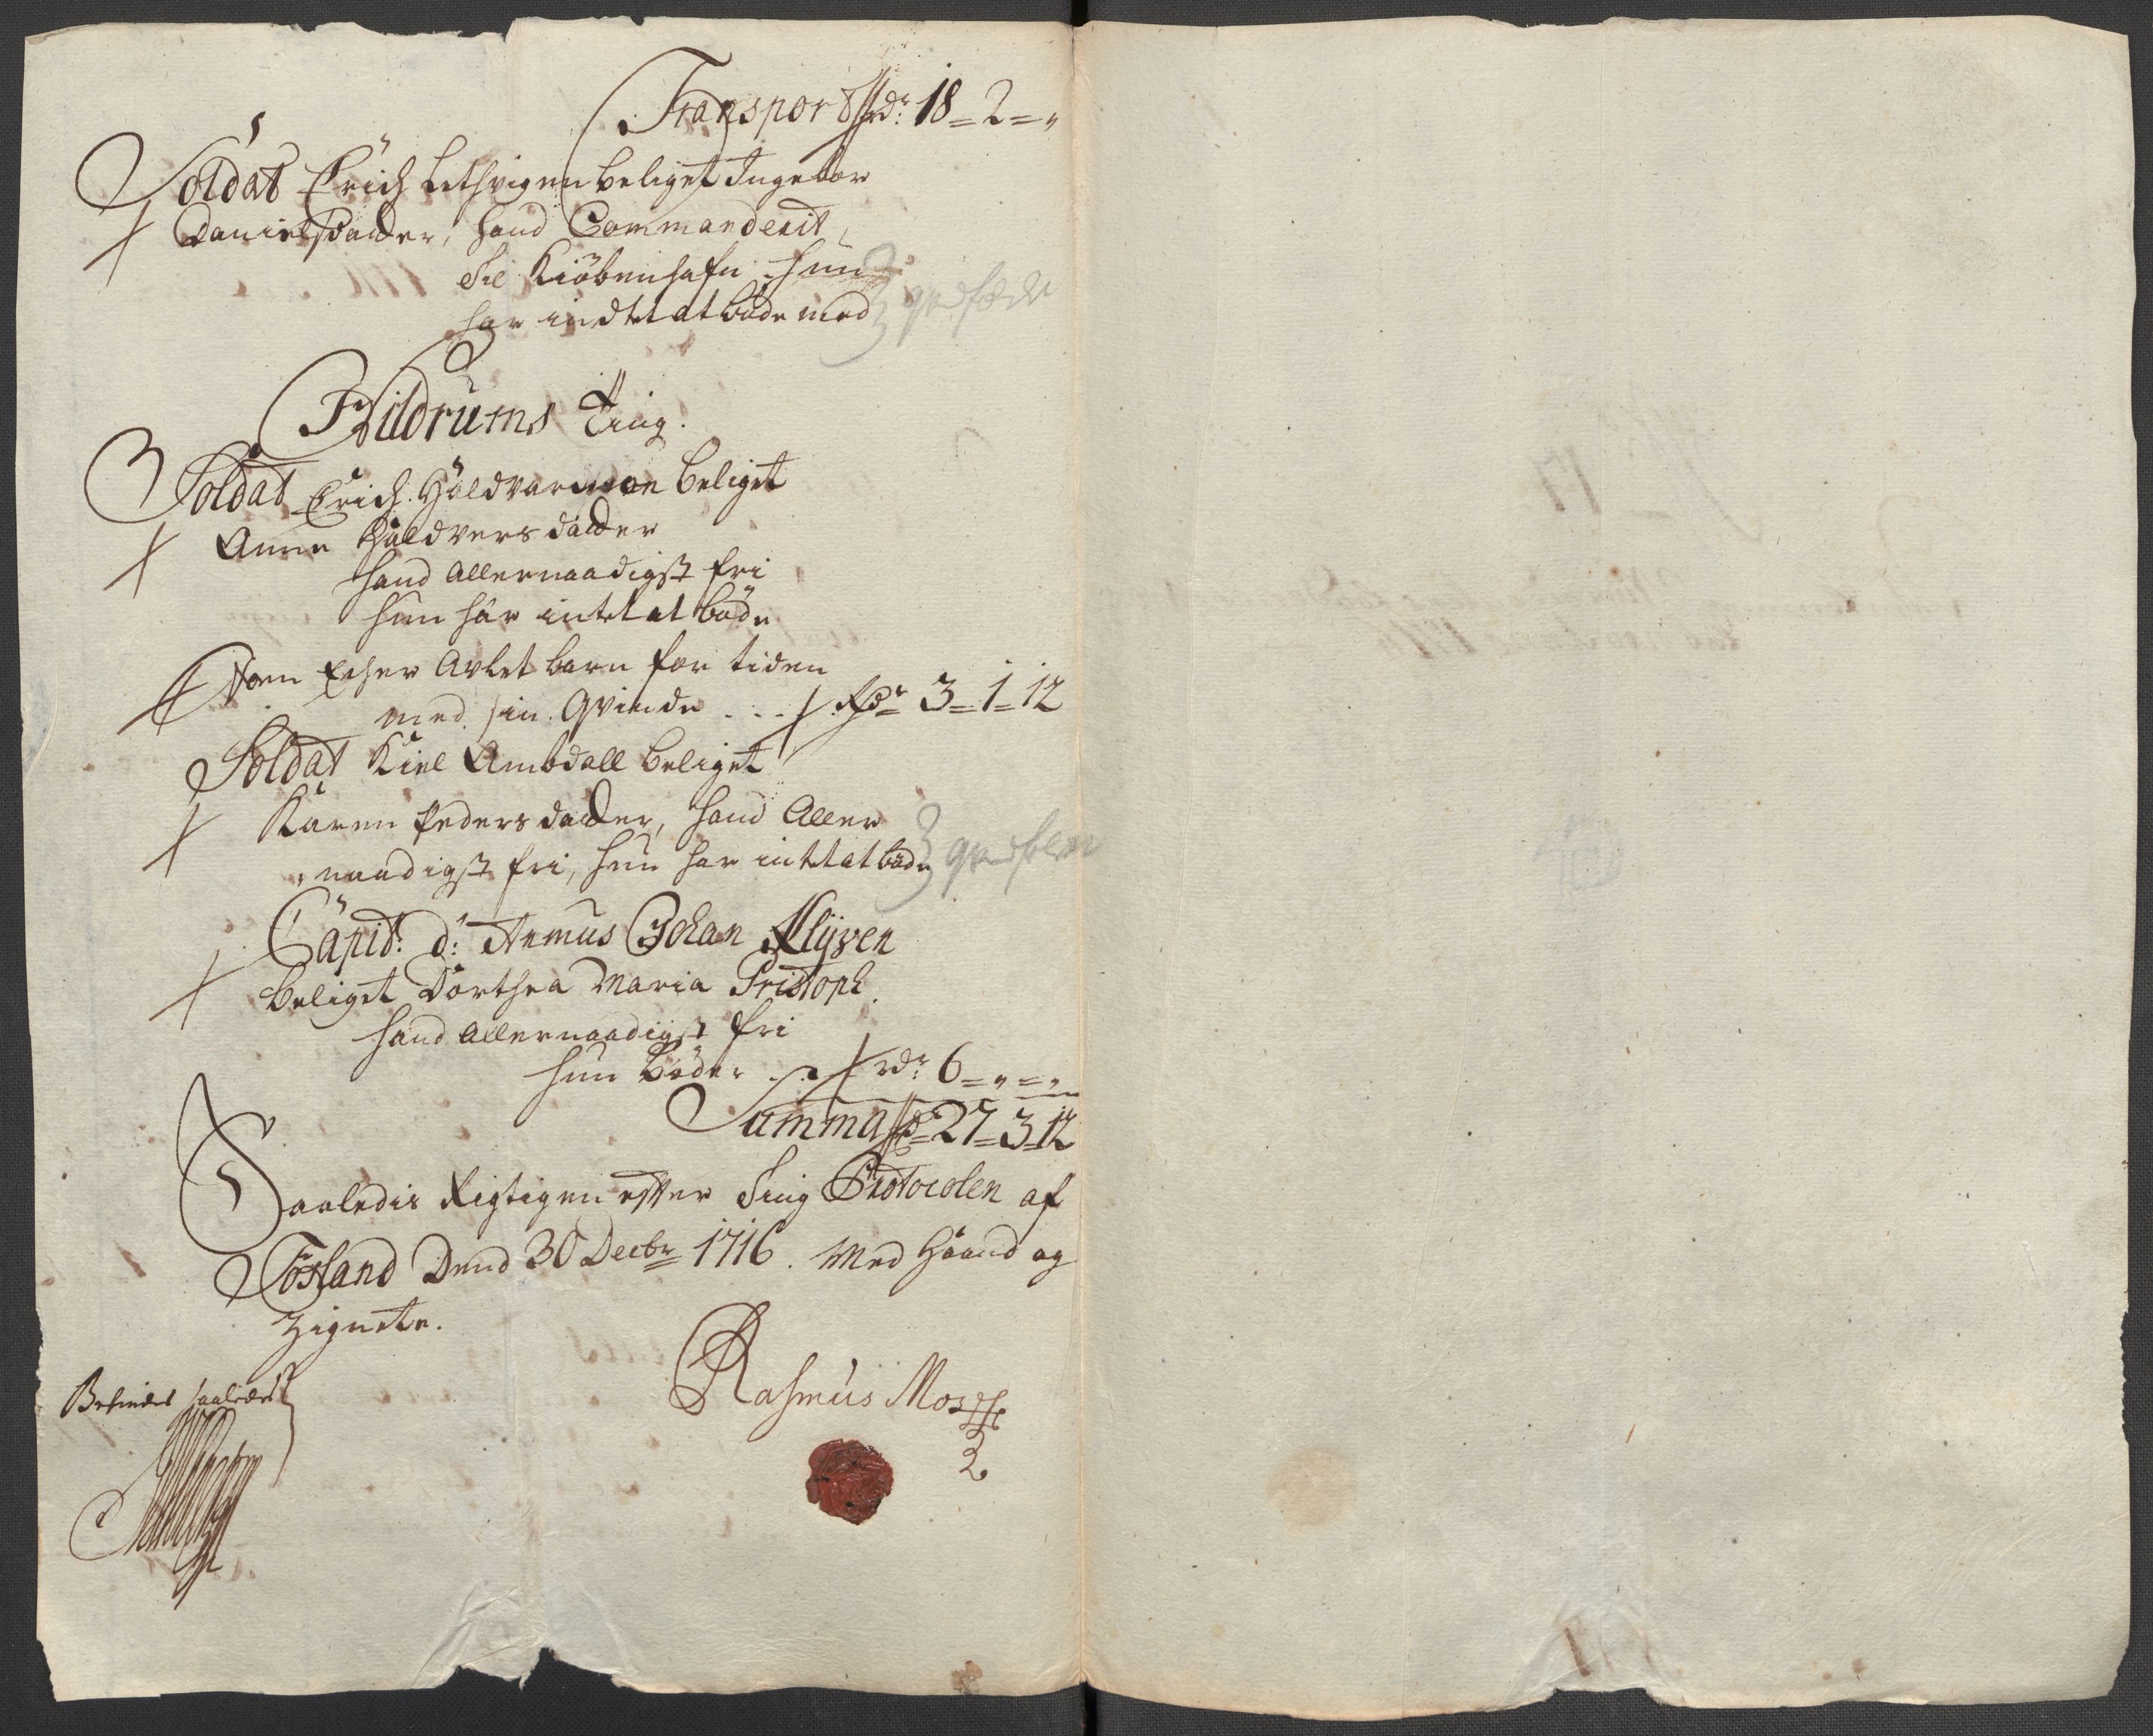 Transport Rdr 18 = 2 = "
Soldat Erich Lethvigen beliget Ingebor
Danielsdatter, hand Commanderit
til Kiöbenhafn, hun
har indtet at böde med
Fildrums Ting.
Soldat Erich Haldvardsen beliget
Anne Haldversdatter
hand allernaadigst fri
hun har intet at böde
Avlet barn for tiden
med sin Qvinde - - - Rdr 3 = 1 = 12
Soldat Kiel Ambdall beliget
Karen Pedersdatter, hand Aller
naadigst fri, hun har intet at böde
Capit: d: Johan Klyven
beliget Dorthea Maria Fristoph.
hand allernaadigst fri
hun böder - - rdr 6 = " = "
Summa Rdr 27 = 3 = 12
Saaledis Rigtigen efter Ting Protocolen af
Fosland Dend 30 Decbr 1716. Med Haand og
Zignete.
Rasmus
Befindes saaledes